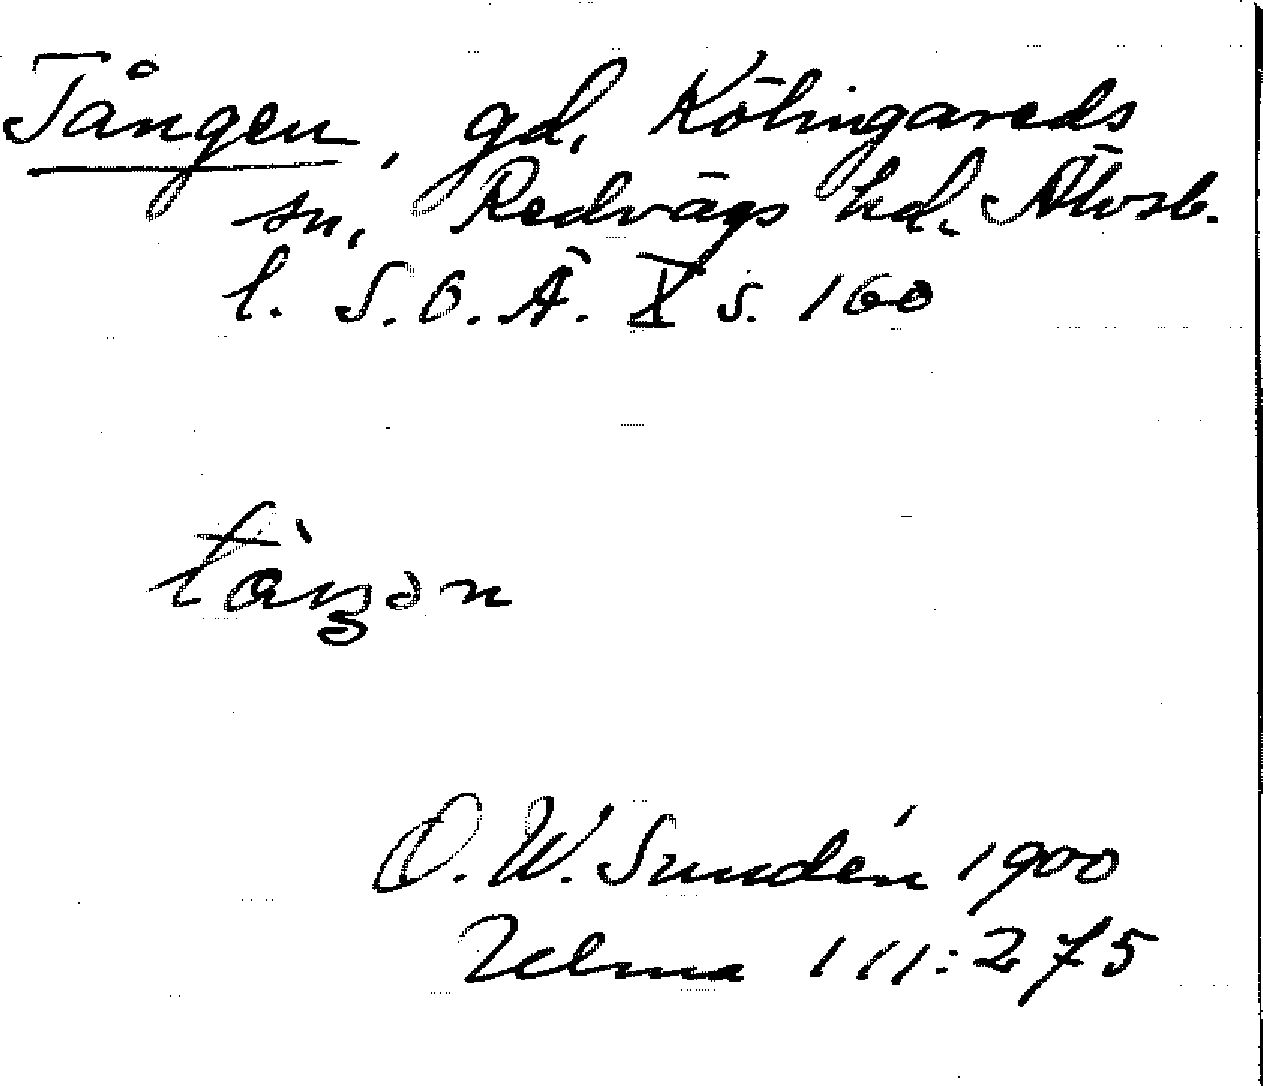 Tången, gd, Kölingareds
sn, Redvägs hd. Älvsb.
l. S.O.Ä. X s. 160
O. W. Sundén 1900
111:275